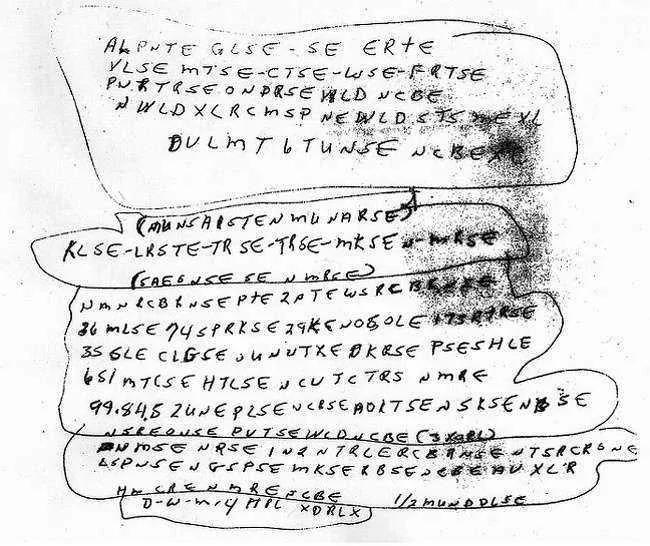 ALPNTE GLSE - SE ERTE
VLSE MTSE-CTSE-WSE-FRTSE
PNRTRSE ON DRSE WLD NCBE
NWLDXLRCMSP NEWLDSTS ME XL
DULMT 6 TUNSE NCBEX
(MUNSARSTEN MUNARSE)
KLSE-LRSTE-TRSE-TRSE-MKSEN-MRSE
(SAEGNSE SE N MRSE)
NMNRCBRNSE PTE2PTEWSRCBRNSE
36 MLSE 74SPRKSE 29KENOSOLE 173RTRSE
35 GLE CLGSE UNUTXE DKRSE PSESHLE
651 MTCSE HTLSE NCUTCTRS NMRE
99.84.52UNEPLSE NCRSE AOLTSE NSKSENBSE
NSREONSE PVTSE WLD NCBE (3XORL)
NMSE NRSE IN2NTRLERCBRNSE NTSRCRONE
LSPNSE NGSPSE MKSERBSE NCBE AUXLR
HMCRE NMRE NCBE 1/2 MUNDDLSE
D-W-M-4 MPL XDRLX